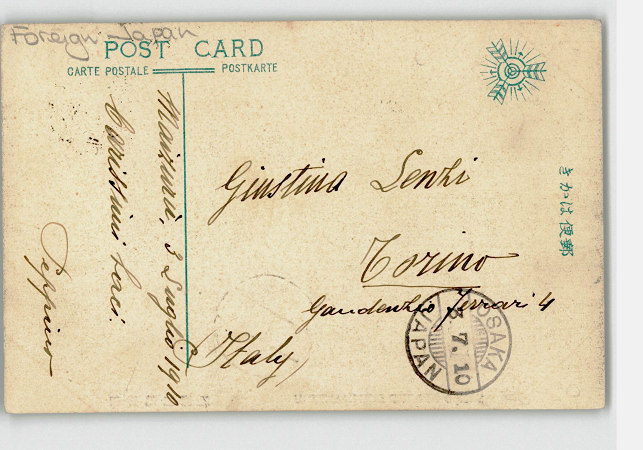 Foreign Japan
POST CARD
CARTE POSTALE
POSTKARTE
Maizuru, 3 Luglio 1910
Carissimi baci.
Peppino
Giustina Lenzi
Torino
Gaudenzio Ferrari 4
(Italy)
きかは便郵
OSAKA
3.7.10
JAPAN